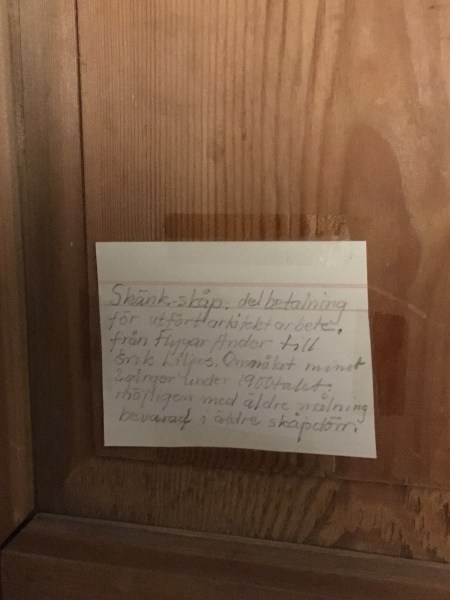 Skänk-skåp. delbetalning
för utfört arkitektarbete.
från Flygar Ander till
Erik Liljas. Ommålat minst
2 gånger under 1900talet.
möjligen med äldre målning
bevarad i äldre skåpdörr.